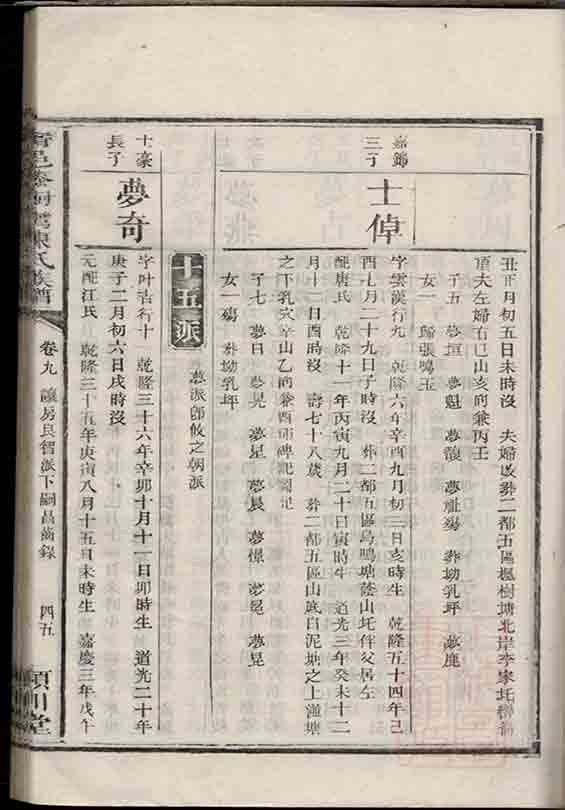 丑正月初五日未時沒 夫婦改葬二都五區楓樹塘北岸李家圫
頂夫左婦右巳山亥向兼丙壬
子五 夢垣 夢魁 夢馥 夢祉殤 葬坳乳坪 夢鹿
女一 歸張鳴玉
嘉錦三子
士倬
字雲漢行九 乾隆六年辛酉九月初三日亥時生 乾隆五十四年己
酉七月二十九日子時沒 葬二都五區烏鴨塘蔭山圫伴父居左
配唐氏 乾隆十一年丙寅九月二十日寅時生 道光三年癸未十二
月十一日酉時沒 壽七十八歲 葬二都五區山底白泥塘之上灘塘
之下乳穴辛山乙向兼酉卯碑
子七 夢日 夢晃 夢星 夢晨 夢 夢 夢晃
女一殤 葬坳乳坪
十五派
夢派 之朝派
士豪長子
夢奇
字叶吉行十 乾隆三十六年辛卯十月十一日卯時生 道光二十年
庚子二月初六日戌時沒
元配江氏 乾隆三十五年庚寅八月十五日未時生 嘉慶三年戊午
陳氏族譜
卷九 讓房良智派下嗣昌齒錄
四五
潁川堂